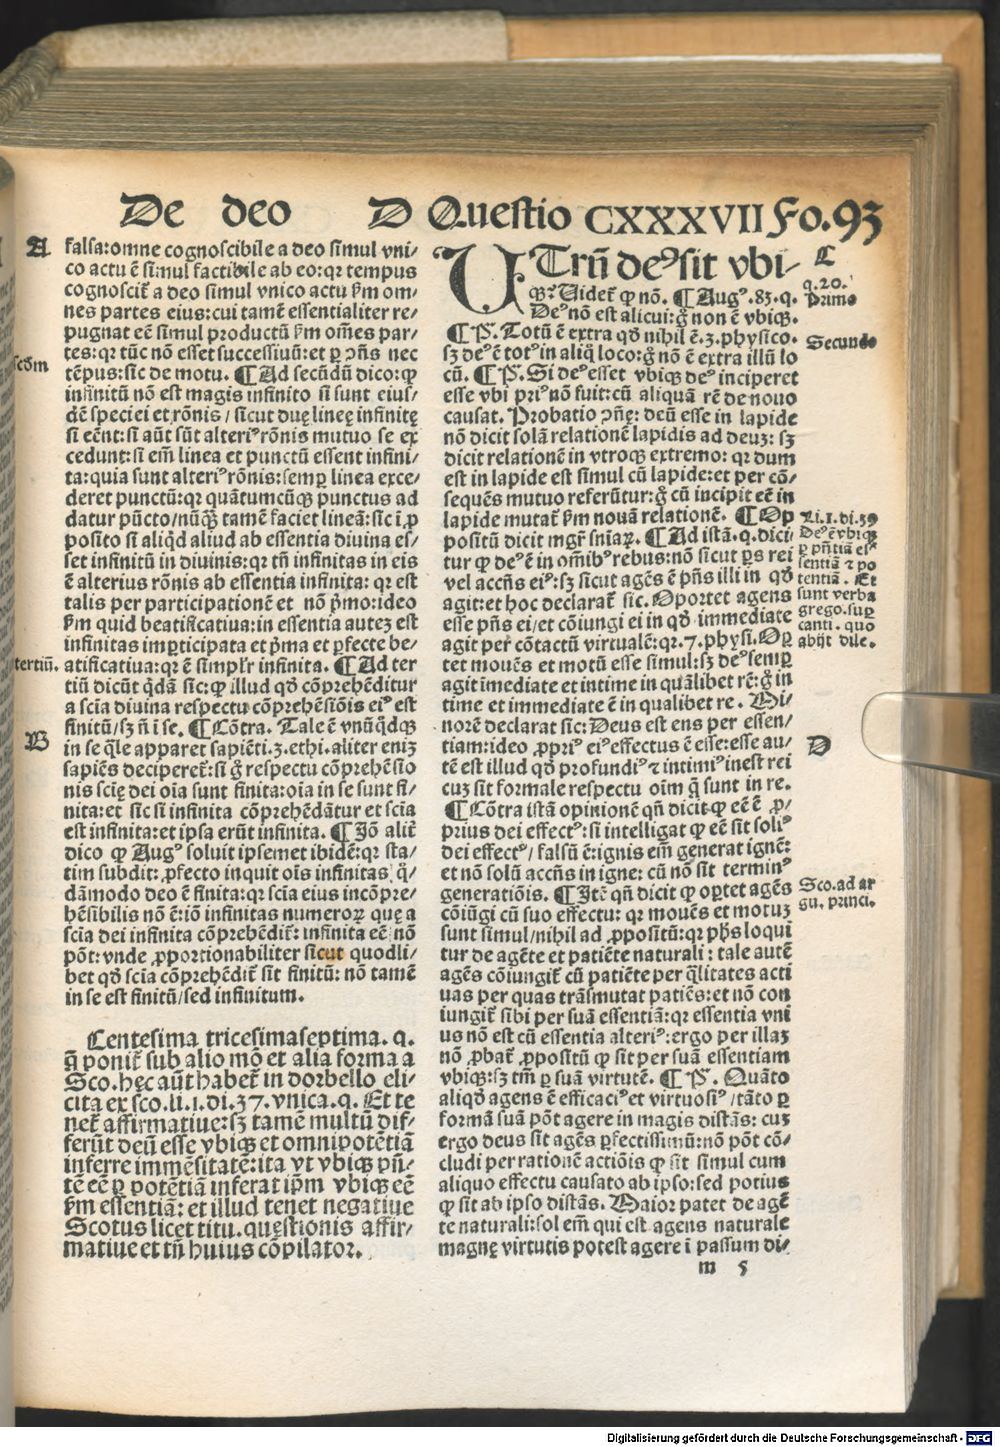 De deo D Questio CXXXVII Fo.93
A
falsa:omne cognoscibile a deo simul vni/
co actu ē simul factibile ab eo:qꝛ tempus
cognoscit̃ a deo simul vnico actu ẜm om/
nes partes eius:cui tamē essentialiter re/
pugnat eē simul productū ẜm om̄es par/
tes:qꝛ tūc nō esset successiuū:et ꝑ ꝯñs nec
scd̄m
tēpus:sic de motu. ¶Ad secūdū dico:ꝙ
infinitū nō est magis infinito si sunt eius/
dē speciei et rōnis/ sicut duę lineę infinitę
si eēnt:si aūt sūt alteriꝰ rōnis mutuo se ex
cedunt:si em̄ linea et punctū essent infini/
ta:quia sunt alteriꝰ rōnis:semꝑ linea exce/
deret punctū:qꝛ quātumcūqꝫ punctus ad
datur pūcto/nūꝙ̃ tamē faciet lineā:sic ī ꝓ
posito si aliqd̄ aliud ab essentia diuina es/
set infinitū in diuinis:qꝛ tñ infinitas in eis
ē alterius rōnis ab essentia infinita: qꝛ est
talis per participationē et nō p̄mo:ideo
ẜm quid beatificatiua:in essentia autez est
infinitas imꝑticipata et p̄ma et ꝑfecte be/
tertiū.
atificatiua:qꝛ ē simplr̄ infinita. ¶Ad ter
tiū dicūt q̄dā sic:ꝙ illud qd̄ cōprehēditur
a scia diuina respectu cōprehēsiōis eiꝰ est
finitū/sꝫ ñ ī se. ¶Cōtra. Tale ē vnūqd̄qꝫ
B
in se q̄le apparet sapiēti.3.ethi.aliter eniꝫ
sapiēs deciperet̃:si g̊ respectu cōprehēsio
nis scię dei oīa sunt finita:oīa in se sunt fi/
nita:et sic si infinita cōprehēdātur et scia
est infinita:et ipsa erūt infinita. ¶Iō alit̃
dico ꝙ Augꝰ soluit ipsemet ibidē:qꝛ sta/
tim subdit: ꝓfecto inquit oīs infinitas q̄/
dāmodo deo ē finita:qꝛ scīa eius incōpre/
hēsibilis nō ē:iō infinitas numeroꝝ quę a
scia dei infinita cōprehēdit̃: infinita eē nō
pōt:vnde ꝓportionabiliter sicut quodli/
bet qd̄ scia cōprehēdit̃ sit finitū: nō tamē
in se est finitū/sed infinitum.
Centesima tricesimaseptima. q.
q̄ ponit̃ sub alio mō et alia forma a
Sco.hęc aūt habet̃ in dorbello eli/
cita ex sco.li.1.di.37.vnica.q. Et te
net̃ affirmatiue:sꝫ tamē multū dif/
ferūt deū esse vbiqꝫ et omnipotētiā
inferre immēsitatē:ita vt vbiqꝫ pñ/
tē eē ꝑ potētiā inferat ip̄m vbiqꝫ eē
ẜm essentiā: et illud tenet negatiue
Scotus licet titu. quęstionis affir/
matiue et tñ huius cōpilatoꝛ.
UTrū deꝰ sit vbi/
C
qꝫ: Uidet̃ ꝙ nō. ¶Augꝰ.83.q.
q.20.
Primo
Deꝰ nō est alicui:g̊ non ē vbiqꝫ.
¶P̄. Totū ē extra qd̄ nihil ē.3.physico.
Secundo
sꝫ deꝰ ē totꝰ in aliq̊ loco:g̊ nō ē extra illū lo
cū. ¶P̄. Si deꝰ esset vbiqꝫ deꝰ inciperet
esse vbi priꝰ nō fuit:cū aliquā rē de nouo
causat. Probatio ꝯñę: deū esse in lapide
nō dicit solā relationē lapidis ad deuꝫ: sꝫ
dicit relationē in vtroqꝫ extremo: qꝛ dum
est in lapide est simul cū lapide:et per cō/
sequēs mutuo referūtur:g̊ cū incipit eē in
lapide mutat̃ ẜm nouā relationē. ¶Op
Li.1.di.39
positū dicit mgr̄ sniaꝝ. ¶Ad istā.q.dici/
Deꝰ ē vbiqꝫ
tur ꝙ deꝰ ē in om̄ibꝰ rebus:nō sicut ꝑs rei
ꝑ pñtiā es/
vel accñs eiꝰ:sꝫ sicut agēs ē pñs illi in qd̄
sentiā ⁊ po
tentiā. Et
agit:et hoc declarat̃ sic. Oportet agens
sunt verba
esse pñs ei/et cōiungi ei in qd̄ immediate
grego.suꝑ
canti. quo
agit per cōtactū virtualē:qꝛ.7.physi.Oꝑ
abijt dile.
tet mouēs et motū esse simul:sꝫ deꝰ semꝑ
agit īmediate et intime in quālibet rē:g̊ in
time et immediate ē in qualibet re. Mi/
norē declarat sic:Deus est ens per essen/
D
tiam:ideo ꝓpriꝰ eiꝰ effectus ē esse:esse au/
tē est illud qd̄ profundiꝰ ⁊ intimiꝰ inest rei
cuꝫ sit formale respectu oīm q̄ sunt in re.
¶Cōtra istā opinionē qñ dicit ꝙ eē ē ꝓ/
prius dei effectꝰ:si intelligat ꝙ eē sit soliꝰ
dei effectꝰ/ falsū ē:ignis em̄ generat ignē:
et nō solū accñs in igne: cū nō sit terminꝰ
generatiōis. ¶Itē qñ dicit ꝙ oꝑtet agēs
Sco.ad ar
cōiūgi cū suo effectu: qꝛ mouēs et motuꝫ
gu. princi.
sunt simul/nihil ad ꝓpositū:qꝛ ph̄s loqui
tur de agēte et patiēte naturali : tale autē
agēs cōiungit̃ cū patiēte per q̄litates acti
uas per quas trāsmutat patiēs:et nō con
iungit̃ sibi per suā essentiā:qꝛ essentia vni
us nō est cū essentia alteriꝰ:ergo per illaꝫ
nō ꝓbat̃ ꝓpositū ꝙ sit per suā essentiam
vbiqꝫ:sꝫ tm̄ ꝑ suā virtutē. ¶P̄. Quāto
aliqd̄ agens ē efficaciꝰ et virtuosiꝰ/tāto ꝑ
formā suā pōt agere in magis distās: cuꝫ
ergo deus sit agēs ꝑfectissimū:nō pōt cō/
cludi per rationē actiōis ꝙ sit simul cum
aliquo effectu causato ab ipso:sed potius
ꝙ sit ab ipso distās. Maior patet de agē
te naturali:sol em̄ qui est agens naturale
magnę virtutis potest agere ī passum di/
m 5
Digitalisierung gefördert durch die Deutsche Forschungsgemeinschaft - DFG